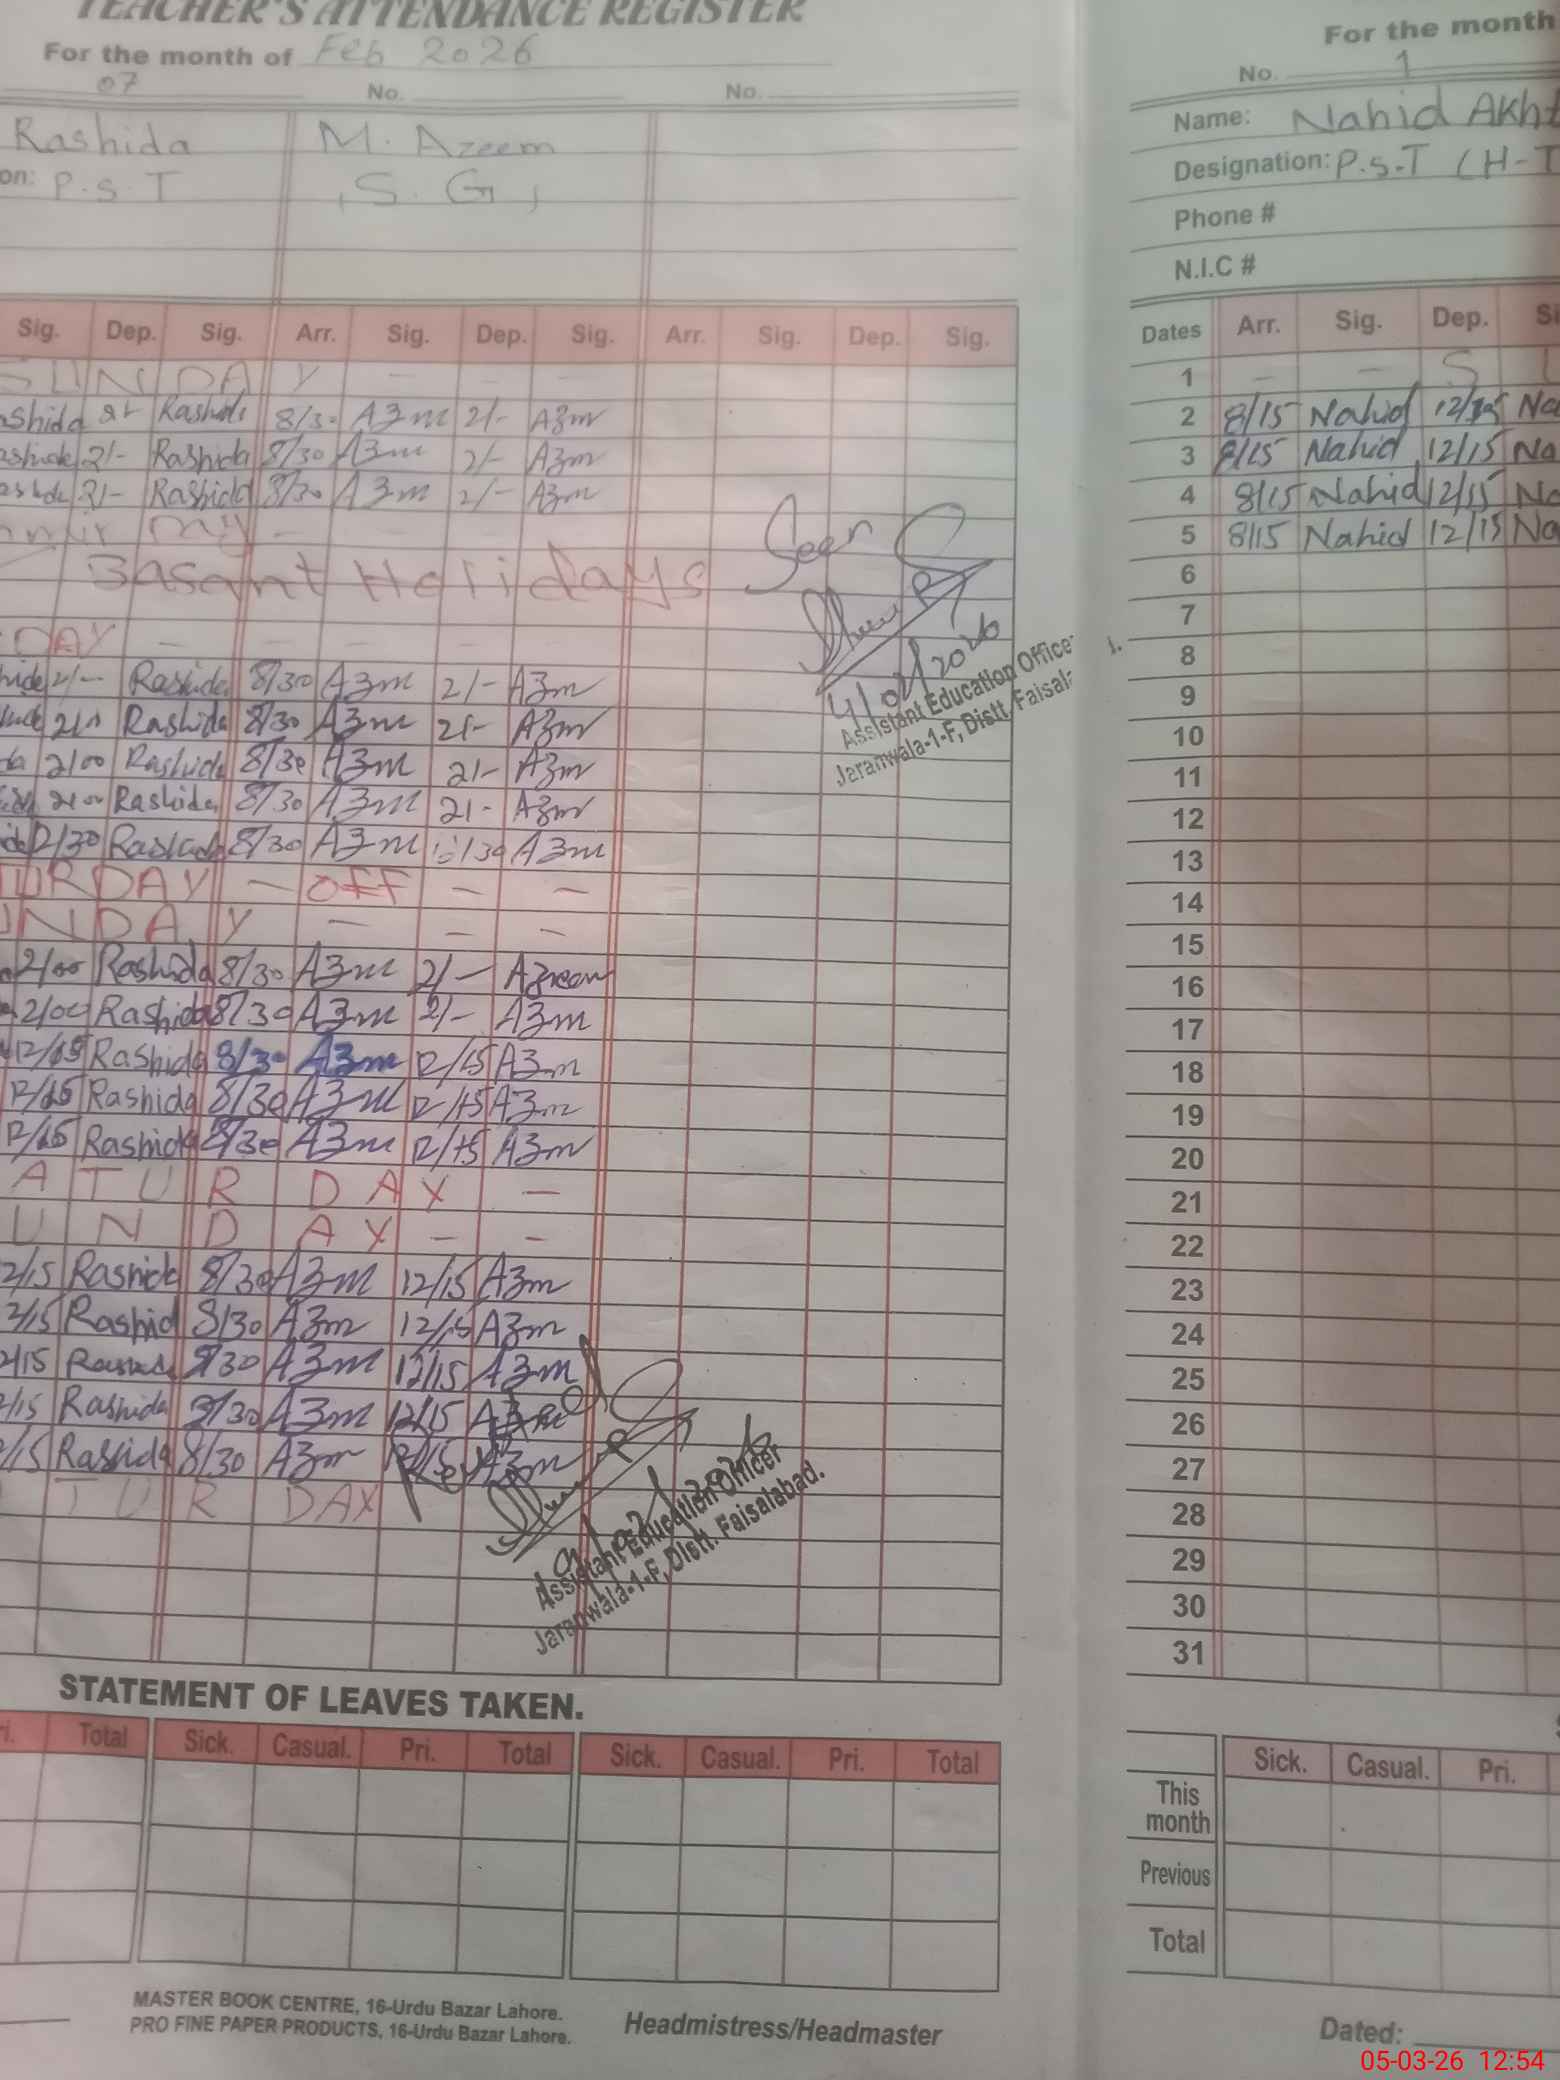 TEACHER'S ATTENDANCE REGISTER
For the month of Feb 2026
07 No. No.
Rashida M. Azeem
on: P.S.T (S. G)
Sig. Dep. Sig. Arr. Sig. Dep. Sig. Arr. Sig. Dep. Sig.
SUNDAY - - -
Rashida 8/30 A3m 2/- A3m
2/- Rashida 8/30 A3m 2/- A3m
2/- Rashida 8/30 A3m 2/- A3m
Basant Holidays
DAY - - - - -
2/- Rashida 8/30 A3m 2/- A3m
Rashida 8/30 A3m 2/- A3m
2/00 Rashida 8/30 A3m 2/- A3m
2/00 Rashida 8/30 A3m 2/- A3m
12/30 Rashida 8/30 A3m 12/30 A3m
TURDAY - OFF - -
UNDAY - - -
2/00 Rashida 8/30 A3m 2/- Azeem
2/00 Rashida 8/30 A3m 2/- A3m
12/15 Rashida 8/30 A3m 12/15 A3m
12/15 Rashida 8/30 A3m 12/15 A3m
12/15 Rashida 8/30 A3m 12/15 A3m
ATURDAY -
UNDAY - -
2/15 Rashida 8/30 A3m 12/15 A3m
2/15 Rashid 8/30 A3m 12/15 A3m
2/15 Rashida 8/30 A3m 12/15 A3m
2/15 Rashida 8/30 A3m 12/15 A3m
2/15 Rashida 8/30 A3m 12/15 A3m
TURDAY
Seen
Assistant Education Officer
Jaranwala-1-F, Distt. Faisala
Assistant Education Officer
Jaranwala-1-F, Distt. Faisalabad.
STATEMENT OF LEAVES TAKEN.
ri. Total Sick. Casual. Pri. Total Sick. Casual. Pri. Total
MASTER BOOK CENTRE, 16-Urdu Bazar Lahore.
PRO FINE PAPER PRODUCTS, 16-Urdu Bazar Lahore.
Headmistress/Headmaster
For the month
No. 1
Name: Nahid Akht
Designation: P.S.T (H-T
Phone #
N.I.C #
Dates Arr. Sig. Dep. Si
1 - - S U
2 8/15 Nahid 12/15 Na
3 8/15 Nahid 12/15 Na
4 8/15 Nahid 12/15 Na
5 8/15 Nahid 12/15 Na
6
7
8
9
10
11
12
13
14
15
16
17
18
19
20
21
22
23
24
25
26
27
28
29
30
31
Sick. Casual. Pri.
This month
Previous
Total
Dated:
05-03-26 12:54